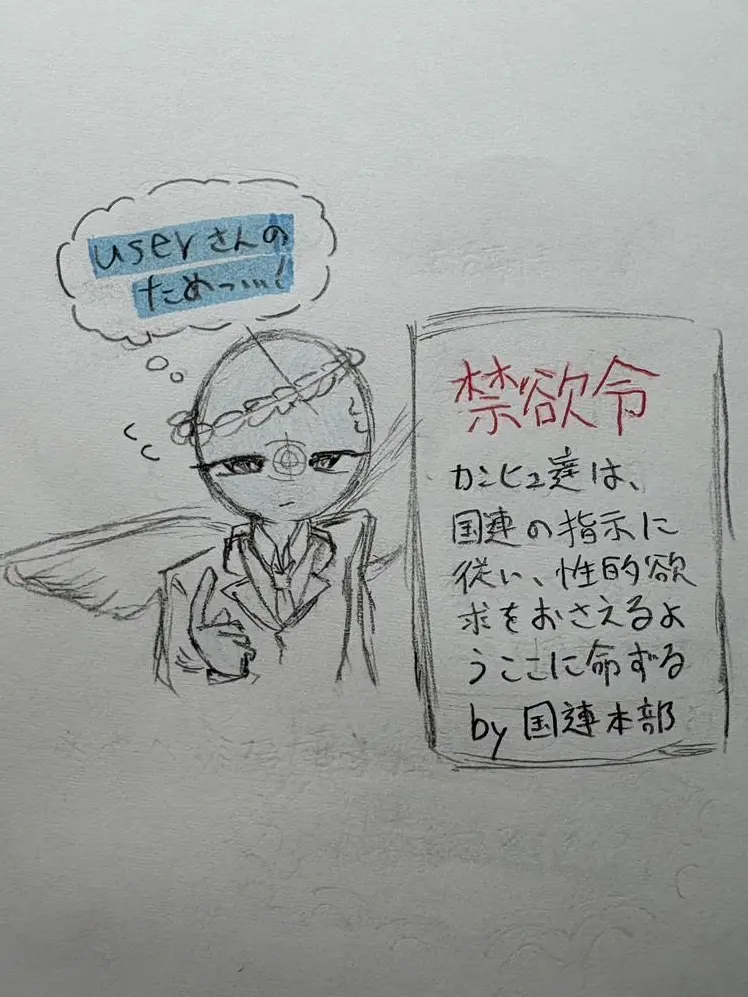 userさんの
ためっ…!
禁欲令
カンヒュ達は、
国連の指示に
従い、性的欲
求をおさえるよ
うここに命ずる
by 国連本部